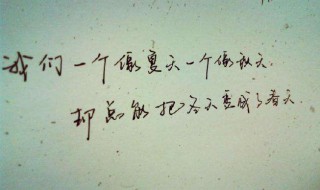 我们一个像夏天一个像秋天.
却总能把冬天变成了春天.